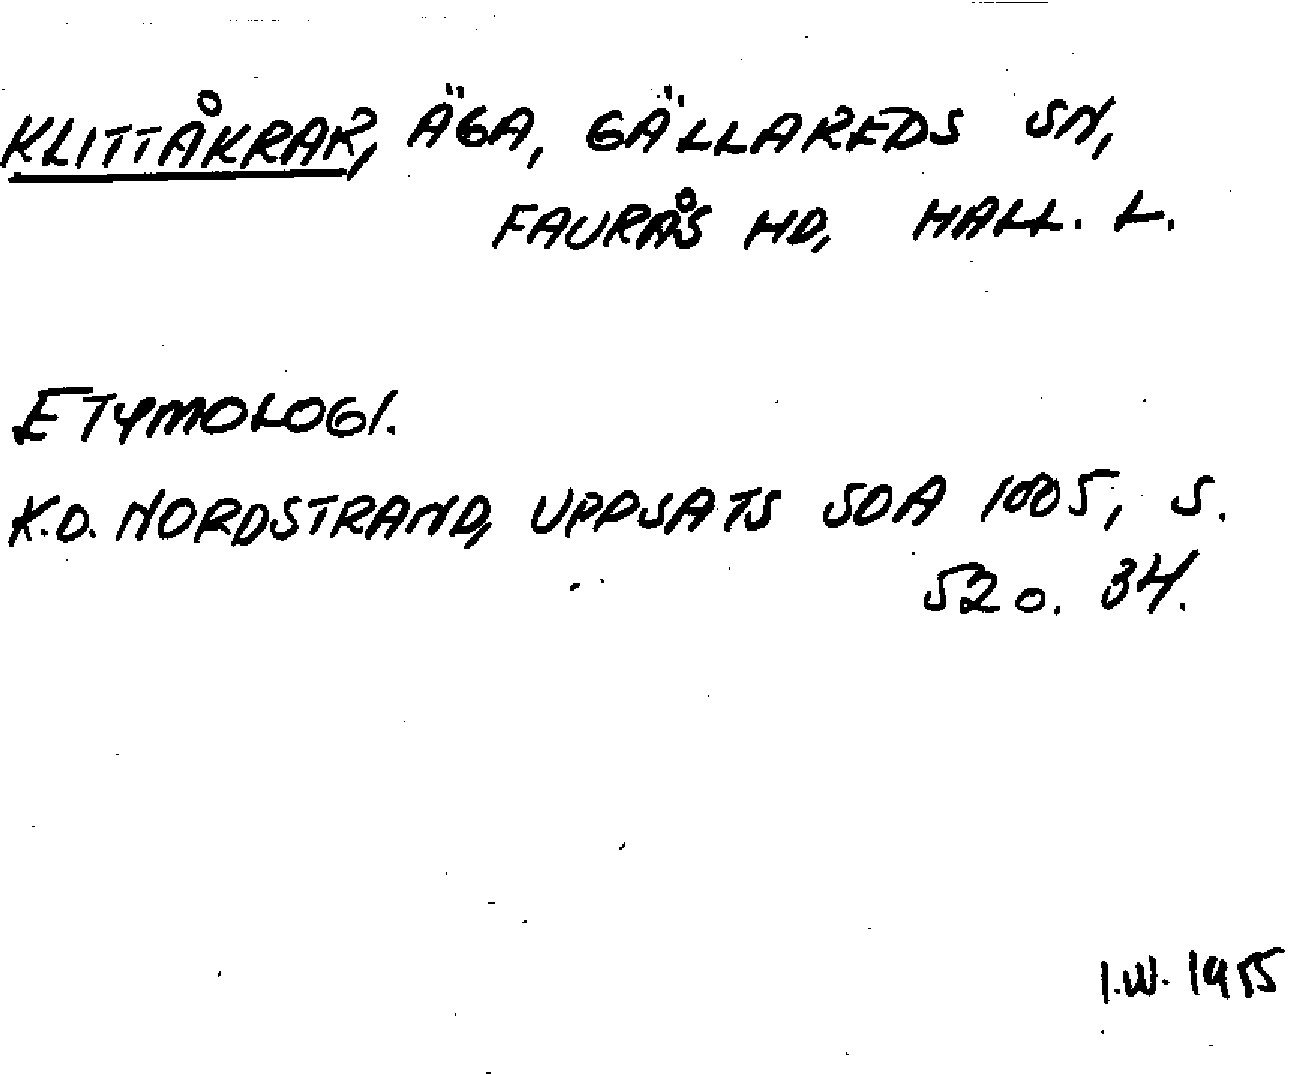 KLITTÅKRAR, ÄGA, GÄLLAREDS SN,
FAURÅS HD, HALL. L.
ETYMOLOGI.
K.O. NORDSTRAND, UPPSATS SOA 1005, S.
52 o. 34.
I.W. 1955